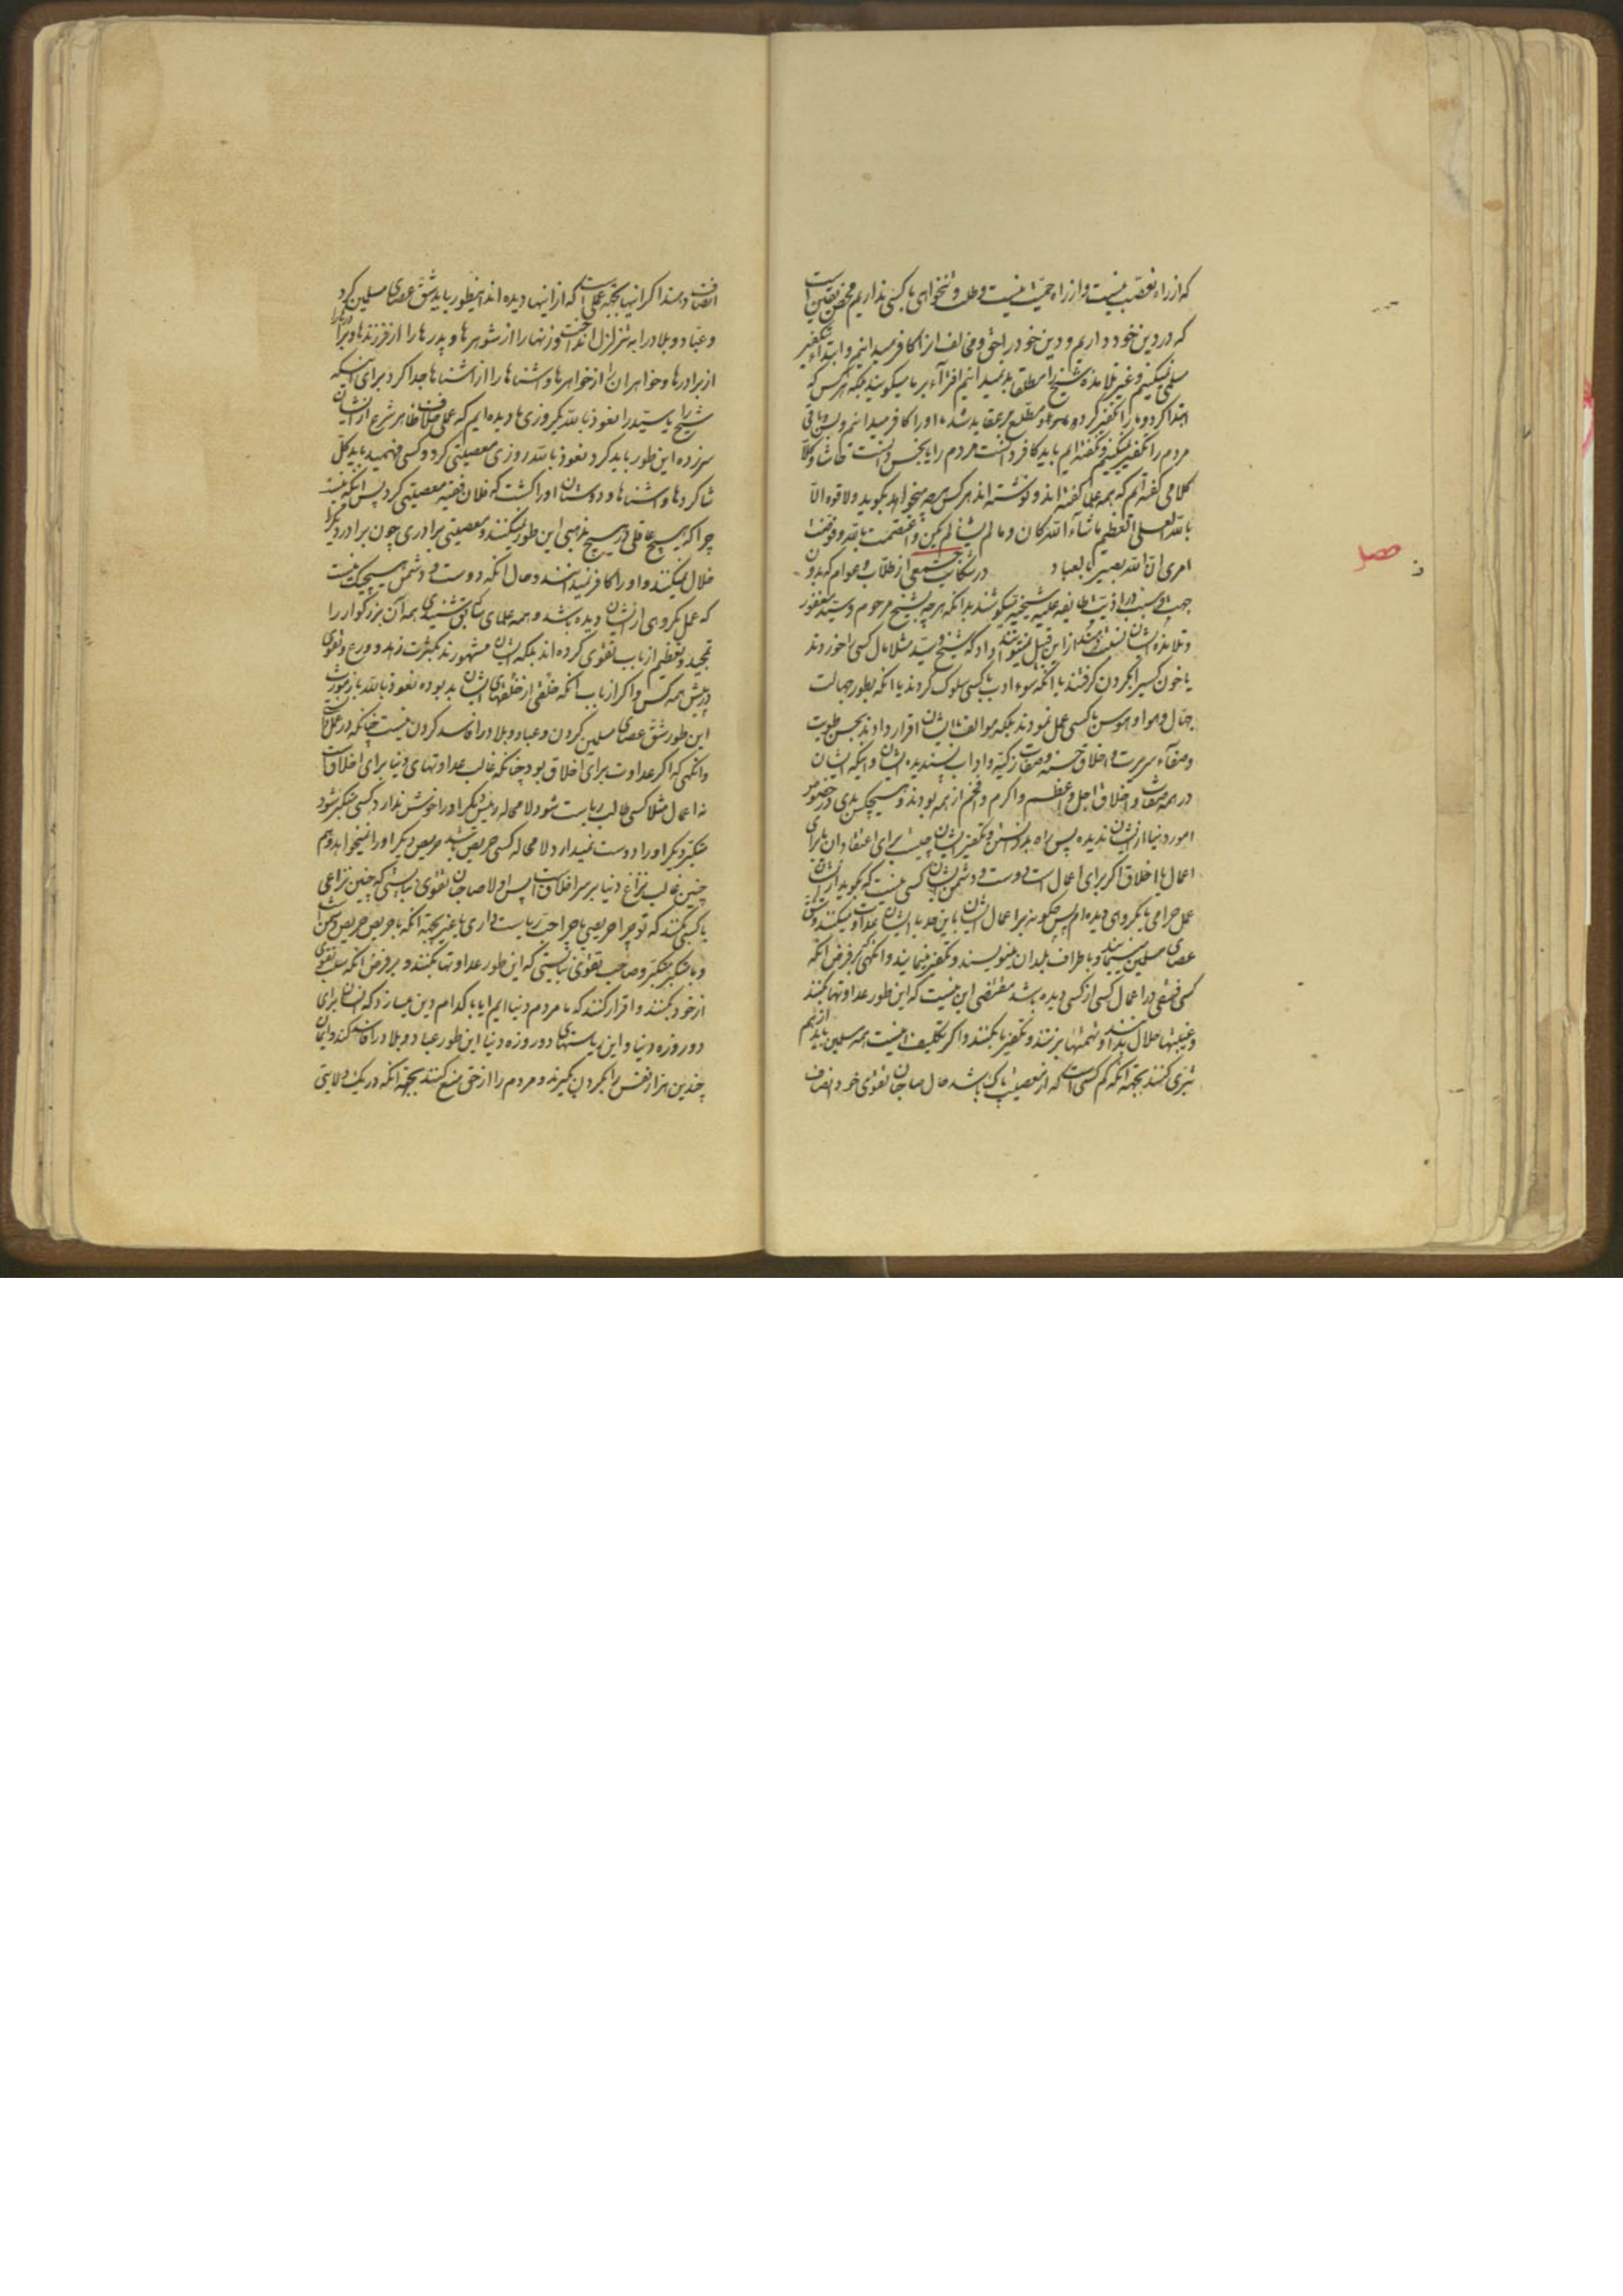 که از راه تعصب نیست و از راه حمیت نیست و طلب و تنخواهی با کسی نداریم محض یقین است
که در دین خود داریم و دین خود را حق و مخالف آنرا کافر میدانیم و ابتداء بتکفیر
مسلمی نمیکنیم و غیر تلامذه شیخ را مطلقا بد نمیدانیم افترآء بر ما میگویند بلکه هر کس که
ابتدا کرد و ما را تکفیر کرد و مطلع بر عقاید شد ما او را کافر میدانیم و باقی
مردم را تکفیر نمیکنیم و نگفته ایم باید کافر دانست مردم را یا نجس دانست حاشا و کلا
کلامی گفته ایم که همه علما گفته اند و نوشته اند هر کس هر چه میخواهد بگوید ولا قوه الا
بالله العلی العظیم ماشآء الله کان و ما لم یشأ لم یکن و اعتصمت بالله و فوضت
امری ان الله بصیر بالعباد در شکایت جمعی از طلاب و عوام که بدون
جهت و سبب در اذیت طایفه علیه شیخیه میکوشند بدانکه هر چه بشیخ مرحوم و سید مغفور
و تلامذه ایشان نسبت دهند از این قبیل نمیتوانند داد که شیخ و سید مثلا مال کسی را خوردند
یا خون کسیرا بگردن گرفتند یا آنکه سوء ادب با کسی سلوک کردند یا آنکه بطور جهالت
جهال و هوا و هوس با کسی عمل نمودند بلکه مؤالف ایشان اقرار دادند بحسن طویت
و صفآء سریرت و اخلاق حسنه و صفات زکیه و اداب پسندیده ایشان و اینکه ایشان
در همه صفات و اخلاق اجل و اعظم و اکرم و افخم از همه بودند و هیچکس بدی در خصوص
امور دنیا از ایشان ندیده پس راه بد دانستن و تکفیر ایشان چیست برای اعتقادات یا برای
اعمال یا اخلاق اگر برای اعمال است دوست و دشمن ایشان کسی نیست که بگوید از ایشان
عمل حرامی یا مکروهی دیده ام پس چگونه برای اعمال ایشان باین حد با ایشان عداوت میکنند و شق
عصای مسلمین مینمایند و باطراف بلدان مینویسند و تکفیر مینمایند و انگهی بر فرض آنکه
کسی فسقی در اعمال کسی از کسی دیده باشد مقتضی این نیست که این طور عداوتها بکنند
و غیبتها حلال بدانند و تهمتها بزنند و تکفیرها بکنند و اگر تکلیف اینست همه مسلمین باید از هم
تبری کنند بجهة آنکه کم کسی است که از معصیت پاک باشد حال صاحبان تقوی خود انصاف
انصاف دهند اگر اینها بجهة عملی است که از اینها دیده اند اینطور باید شق عصای مسلمین کرد
و عباد و بلاد را به تزلزل انداخت و زنها را از شوهرها و پدرها را از فرزندها و برادرها را
از برادرها و خواهران را از خواهرها و اشناها را از اشناها جدا کرد برای اینکه
شیخ را یا سید را نعوذ بالله یکروزی ما دیده ایم که عملی خلاف ظاهر شرع از ایشان
سرزده این طور باید کرد نعوذ بالله روزی معصیتی کرد و کسی فهمید باید کل
شاگردها و اشناها و دوستان او را کشت که فلان فقیه معصیتی کرد پس اینکه نیست
چرا که هیچ عاقلی در هیچ مذهبی این طور نمیکنند و معصیتی برادری چون برادر دیگر را
حلال نمیکنند و او را کافر نمیدانند و حال آنکه دوست و دشمن هیچیک نیست
که عمل مکروهی از ایشان دیده باشد و همه علمای سابق شنیدی همه آن بزرگوار را
تمجید و تعظیم از باب تقوی کرده اند بلکه ایشان مشهورند بکثرت زهد و ورع و تقوی
در پیش همه کس و اگر از باب آنکه خلقی از خلقهای ایشان بد بوده نعوذ بالله باز مورث
این طور شق عصای مسلمین کردن و عباد و بلاد را فاسد کردن نیست چنانکه در عمل
و انگهی که اگر عداوت برای اخلاق بود چنانکه غالب عداوتهای دنیا برای اخلاق است
نه اعمال مثلا کسی طالب ریاست شود لا محاله رئیس دیگر او را خوش ندارد کسی متکبر شود
متکبر دیگر او را دوست نمیدارد لا محاله کسی حریص باشد حریص دیگر او را نمیخواهد و هم
چنین غالب نزاع دنیا بر سر اخلاق است پس اولا صاحبان تقوی نبایستی که چنین نزاعی
با کسی بکنند که تو چرا حریصی یا چرا حب ریاست داری یا غیر بجهة آنکه با حریص حریص دشمن است
و با متکبر متکبر و صاحب تقوی نبایستی که این طور عداوتها بکنند و بر فرض آنکه سلب تقوی
از خود بکنند و اقرار کنند که ما مردم دنیا ایم ایا بکدام دین میسازد که انسان برای
دو روزه دنیا و این ریاستهای دو روزه دنیا این طور عباد و بلاد را فاسد کند و ایمان
چندین هزار نفس را بگردن بگیرند و مردم را از حق منع کنند بجهة آنکه در یک ولایتی